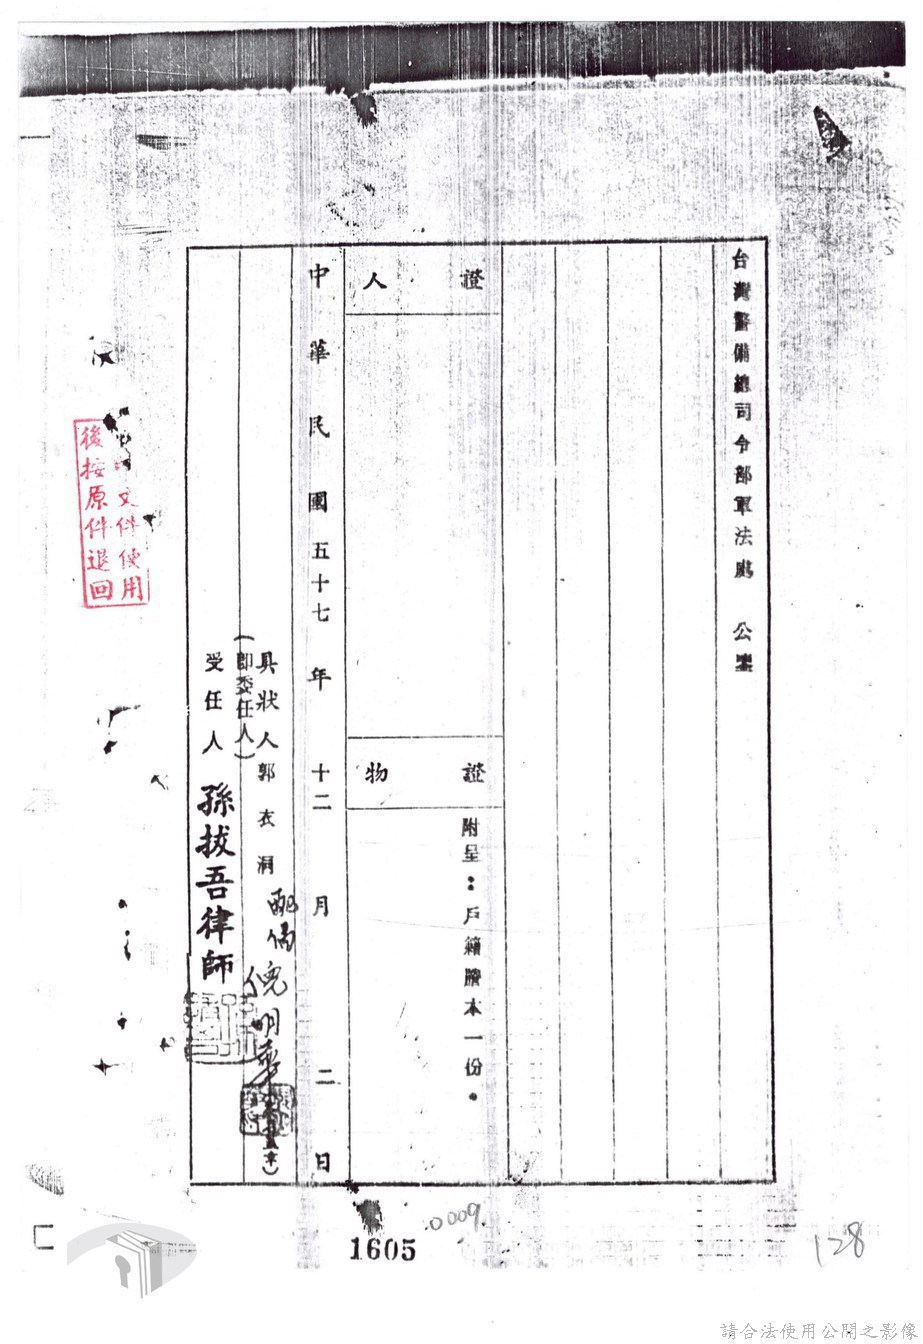 台灣警備總司令部軍法處 公鑒
證人
證物
附呈：戶籍謄本一份。
中華民國五十七年十二月二日
具狀人郭衣洞
(即委任人)
配偶倪明華
受任人 孫拔吾律師
文件使用
後按原件退回
1605
0009
128
請合法使用公開之影像